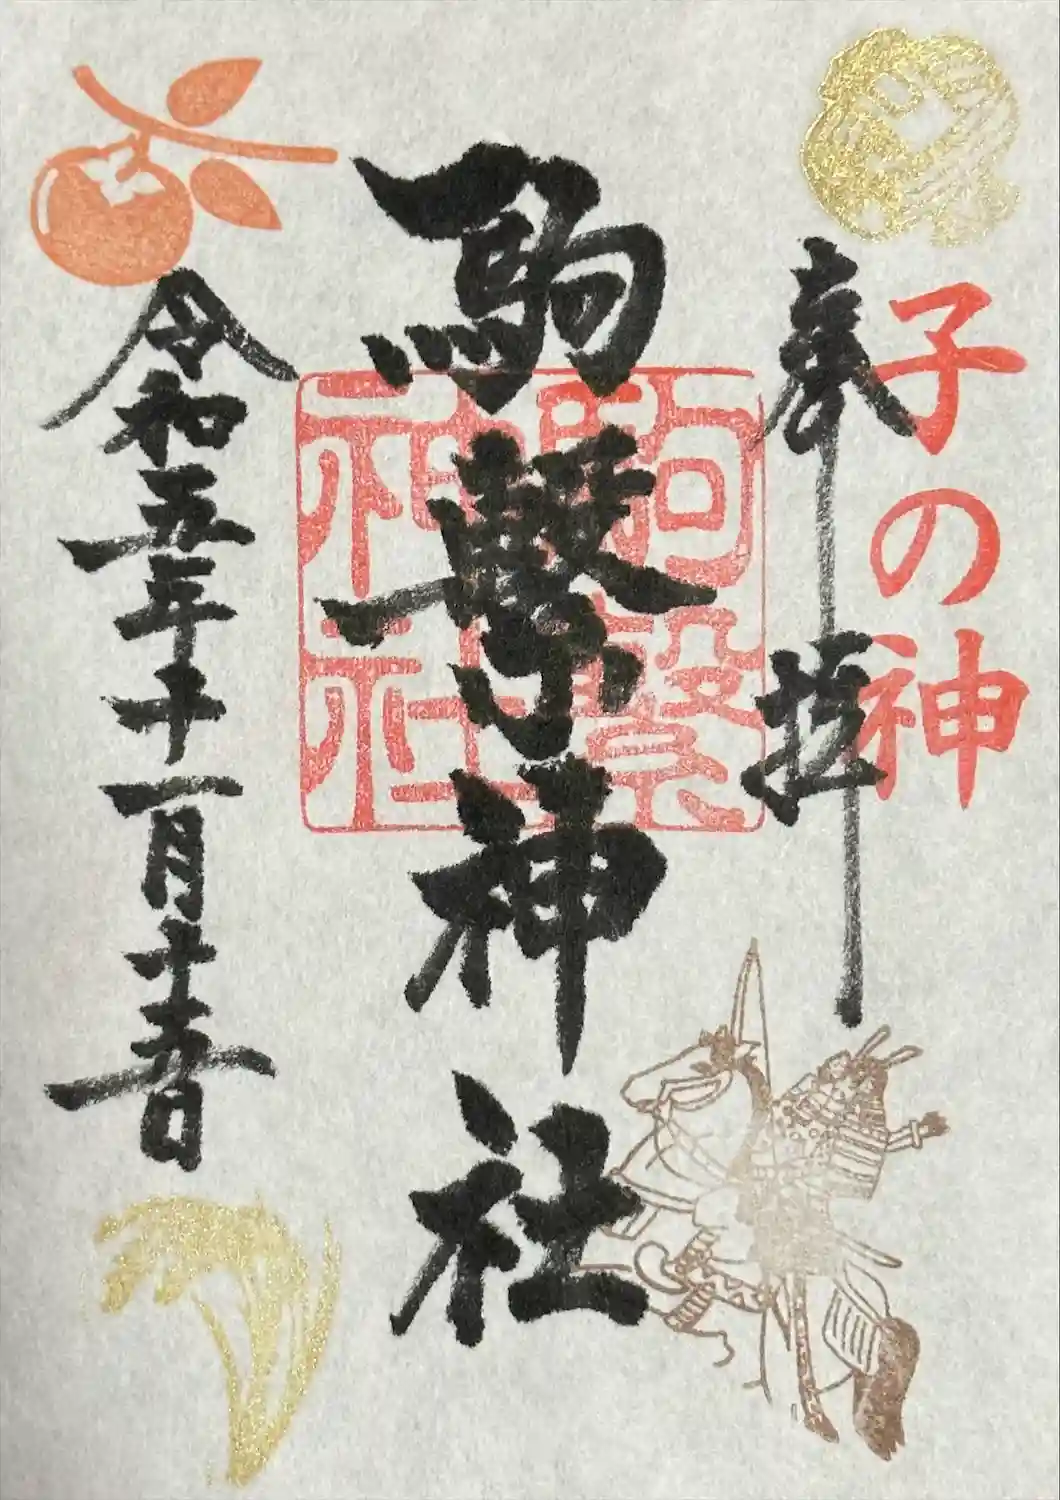 子の神
奉拝
駒繋神社
駒繋神社
令和五年十一月十五日